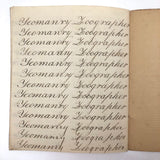 Yeomanry Zoographer
Yeomanry Zoographer
Yeomanry Zoographer
Yeomanry Zoographer
Yeomanry Zoographer
Yeomanry Zoographer
Yeomanry Zoographer
Yeomanry Zoographer
Yeomanry Zoographer
Yeomanry Zoographer
Yeomanry Zoographer
Yeomanry Zoographer